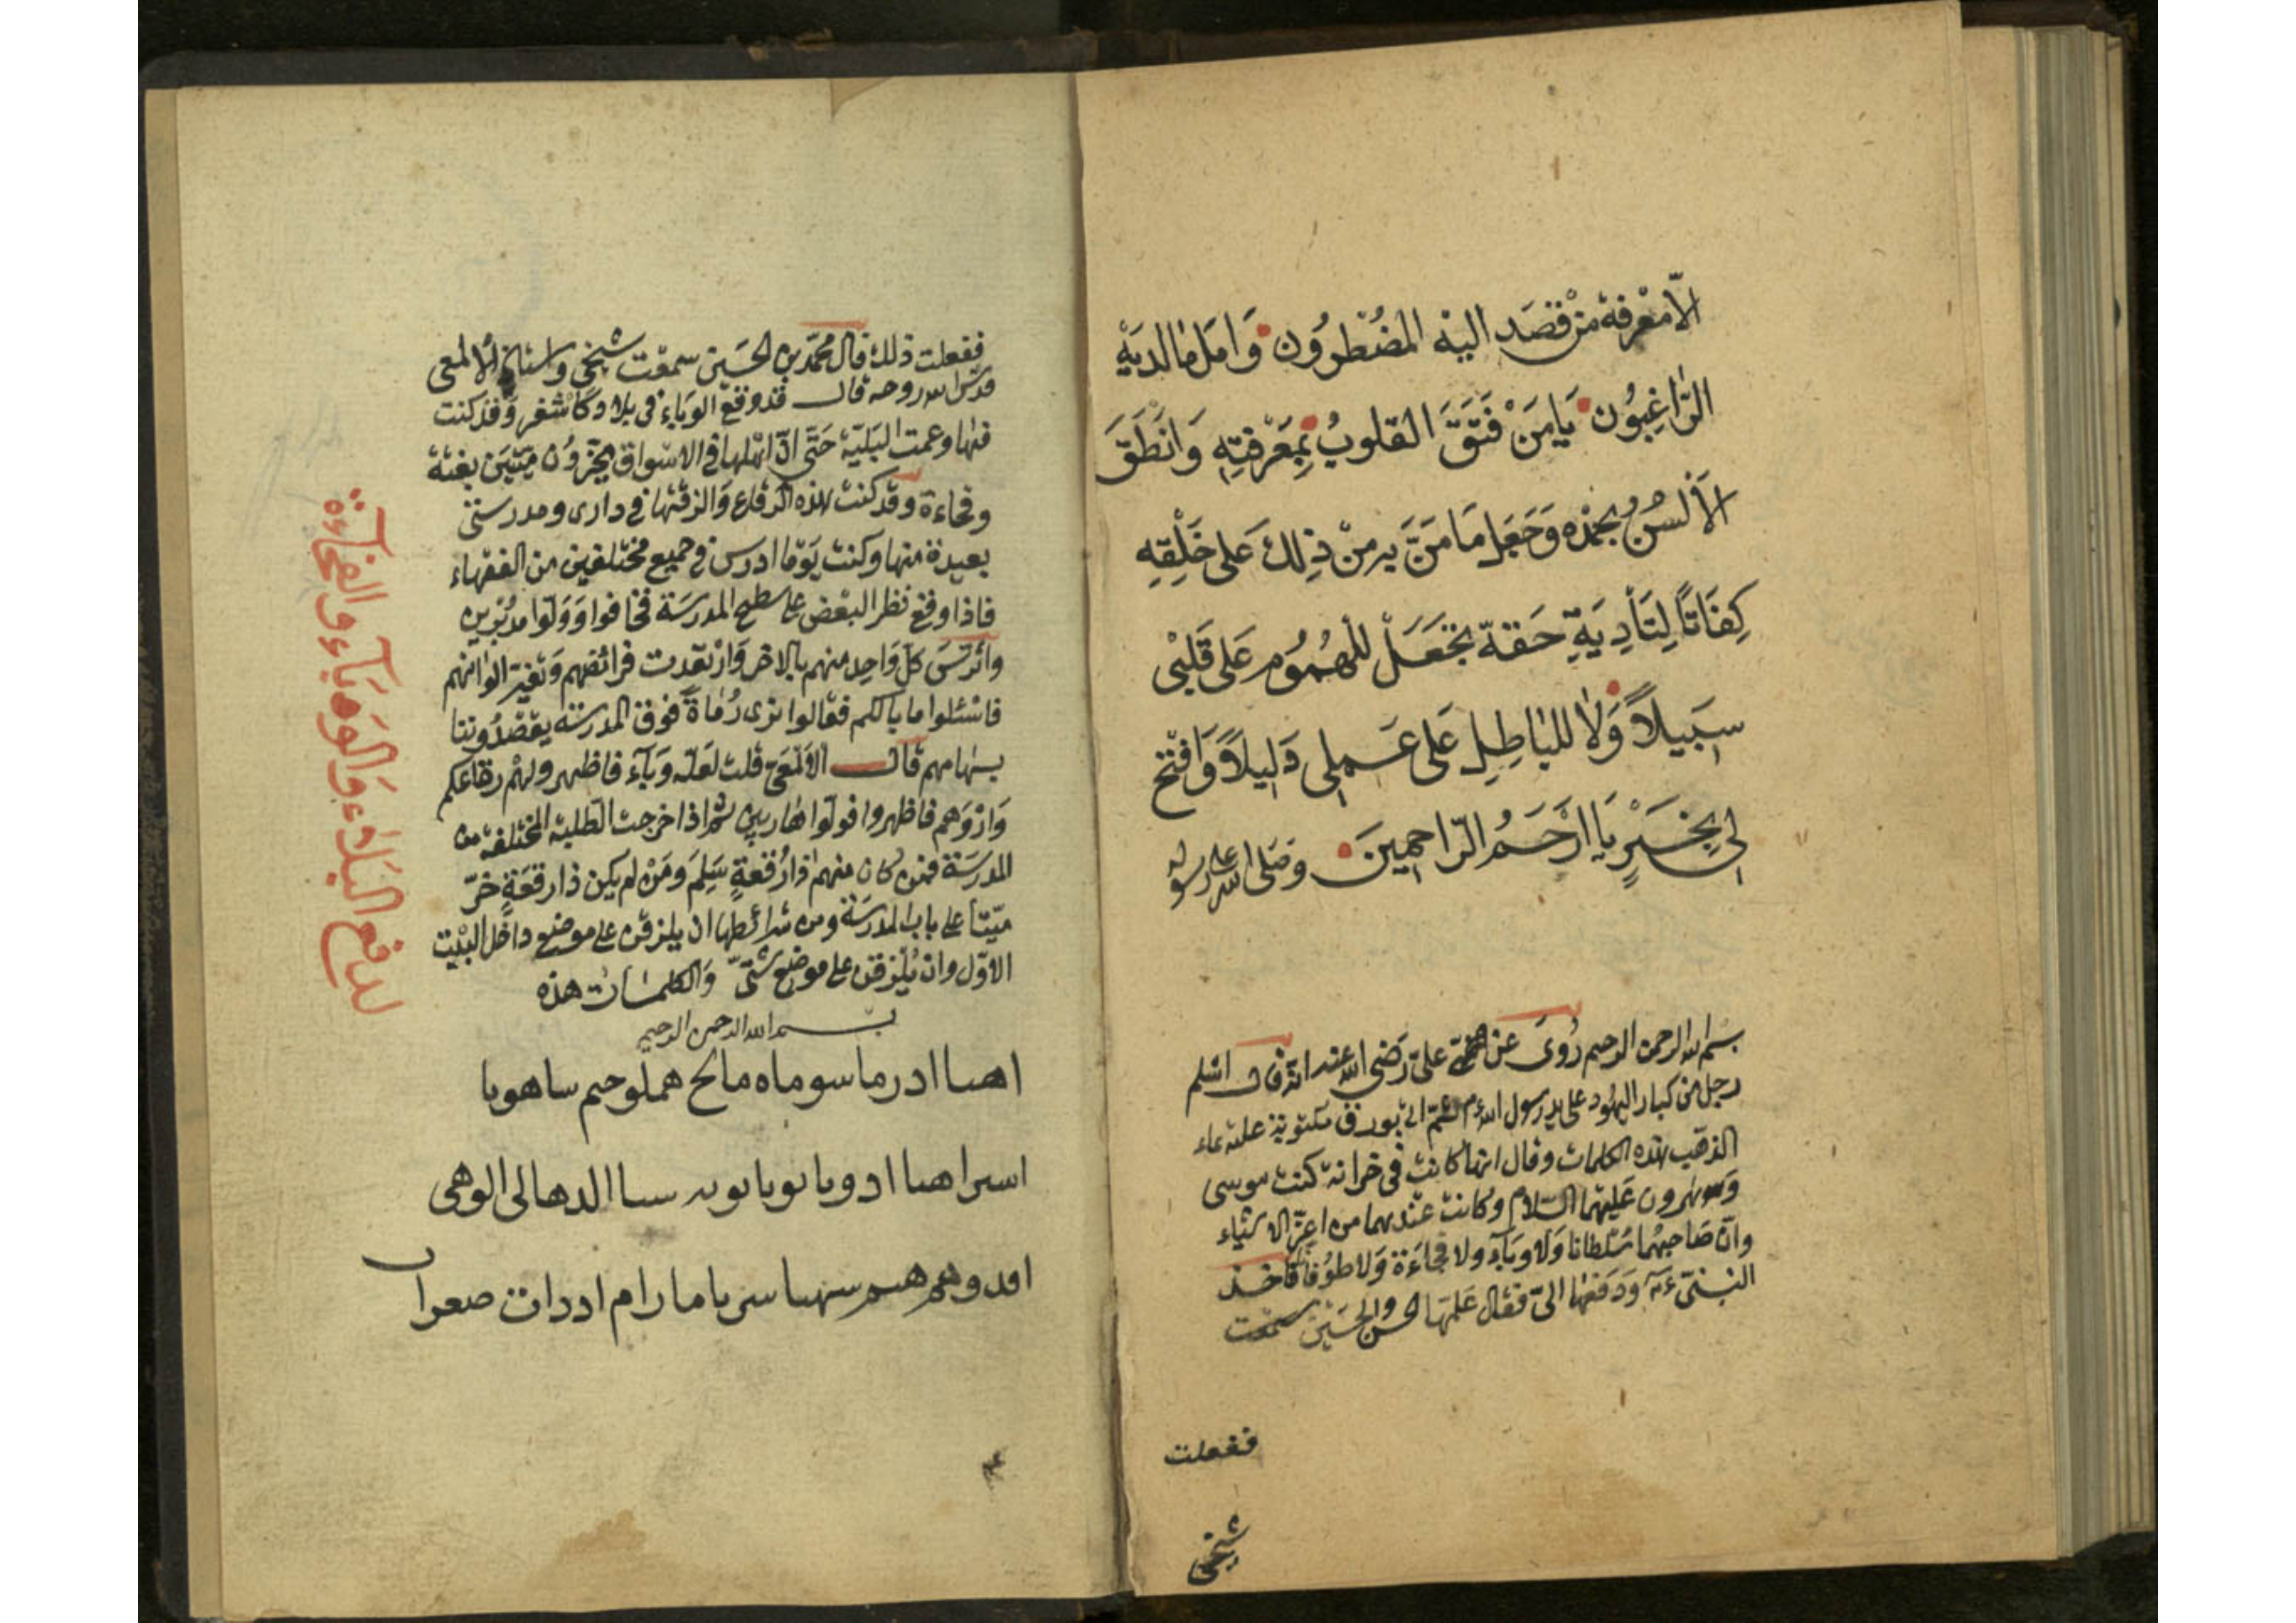 الّا معرفة من قصد اليه المضطرون وامل ما لديه
الراغبون يا من فتق القلوب بمعرفته وانطق
الألسن بحمده وجعل ما من به من ذلك على خلقه
كفاتًا لتأدية حقه تجعل للهموم على قلبى
سبيلاً ولا للباطل على عملي دليلاً وافتح
لي بخير يا ارحم الراحمين وصلى الله على رسوله
بسم الله الرحمن الرحيم روى عن علي رضي الله عنه انه قال اسلم
رجل من كبار اليهود على يد رسول الله ثم اتى بورق مكتوبة عليه بماء
الذهب بهذه الكلمات وقال انها كانت فى خزانة كنت موسى
وهرون عليهما السلام وكانت عندهما من اعز الاشياء
وان صاحبهما سلطانا ولا وباء ولا فجاءة ولا طوفانا فاخذ
النبى ودفعها الىّ فقال علمها الحسن والحسين سمعت
ففعلت
شيخى
ففعلت ذلك قال محمد بن الحسين سمعت شيخى واستاذى الالمعى
قدس الله روحه قال قد وقع الوباء فى بلاد كاشغر وقد كنت
فيها وعمت البلية حتى ان اهلها في الاسواق يخرون ميتين بغتة
وفجاءة وقد كنت هذه الرقاع والزقتها في دارى ومدرستى
بعيدة منها وكنت يوما ادرس في جميع مختلفين من الفقهاء
فاذا وقع نظر البعض على سطح المدرسة فخافوا وولوا مدبرين
واترس كل واحد منهم بالاخر وارتعدت فرائصهم وتغير الوانهم
فاسئلوا ما بالكم فقالوا نرى رماة فوق المدرسة يقصدوننا
بسهامهم قال الالمعى قلت لعله وباء فاظهروا لهم رقاعكم
واروهم فاظهروا فولوا هاربين ثم اذا خرجت الطلبة المختلفة من
المدرسة فمن كان منهم ذا رقعة سلم ومن لم يكن ذا رقعة خرّ
ميتا على باب المدرسة ومن شرائطها ان يلزقن على موضع داخل البيت
الاول وان يلزقن على موضع شتى والكلمات هذه
بسم الله الرحمن الرحيم
اهىا ادرماسوماه مالح هملوحىم ساهوىا
اسراهىا ادوىا ىوىا ىوىه سىا الدهالى الوهى
اڡدوهم هىم سهىا سرىا مارام اددات صعوا
لدفع البلاء والوباء والفجاءة